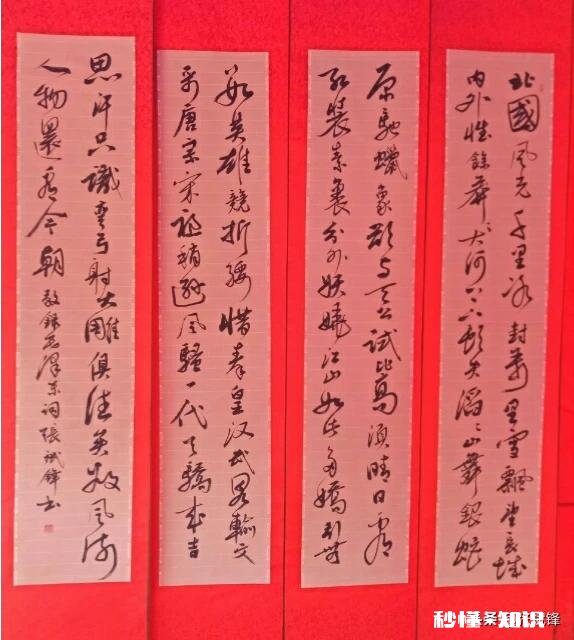 北國風光千里冰封萬里雪飄望長城
内外惟餘莽〻大河上下頓失滔〻山舞銀蛇
原馳蠟象欲与天公試比高須晴日看
紅裝素裹分外妖嬈江山如此多嬌引無
數英雄競折腰惜秦皇漢武略輸文
采唐宗宋祖稍遜風騷一代天驕成吉
思汗只識彎弓射大雕俱往矣數風流
人物還看今朝 敬錄毛澤東詞 張鋒书
秒懂知识